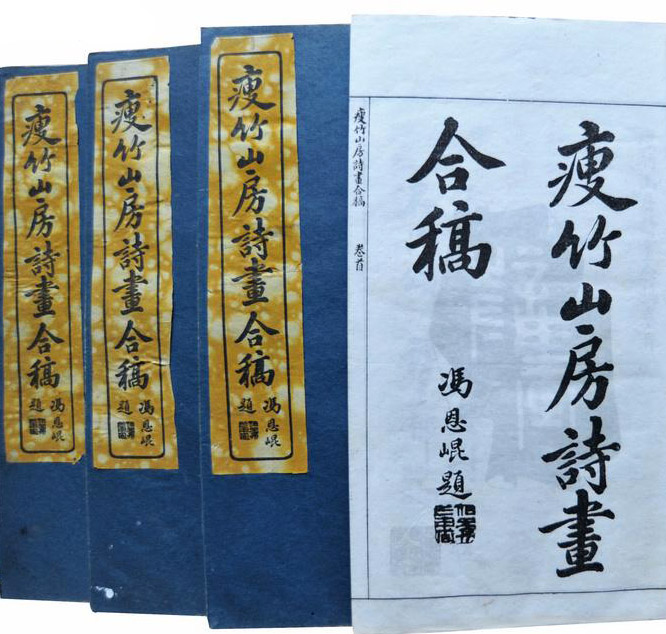 瘦竹山房詩畫
合稿
馮恩崐題
瘦竹山房詩畫合稿 卷首
瘦竹山房詩畫合稿
馮恩崐
題
瘦竹山房詩畫合稿
馮恩崐
題
瘦竹山房詩畫合稿
馮恩崐
題